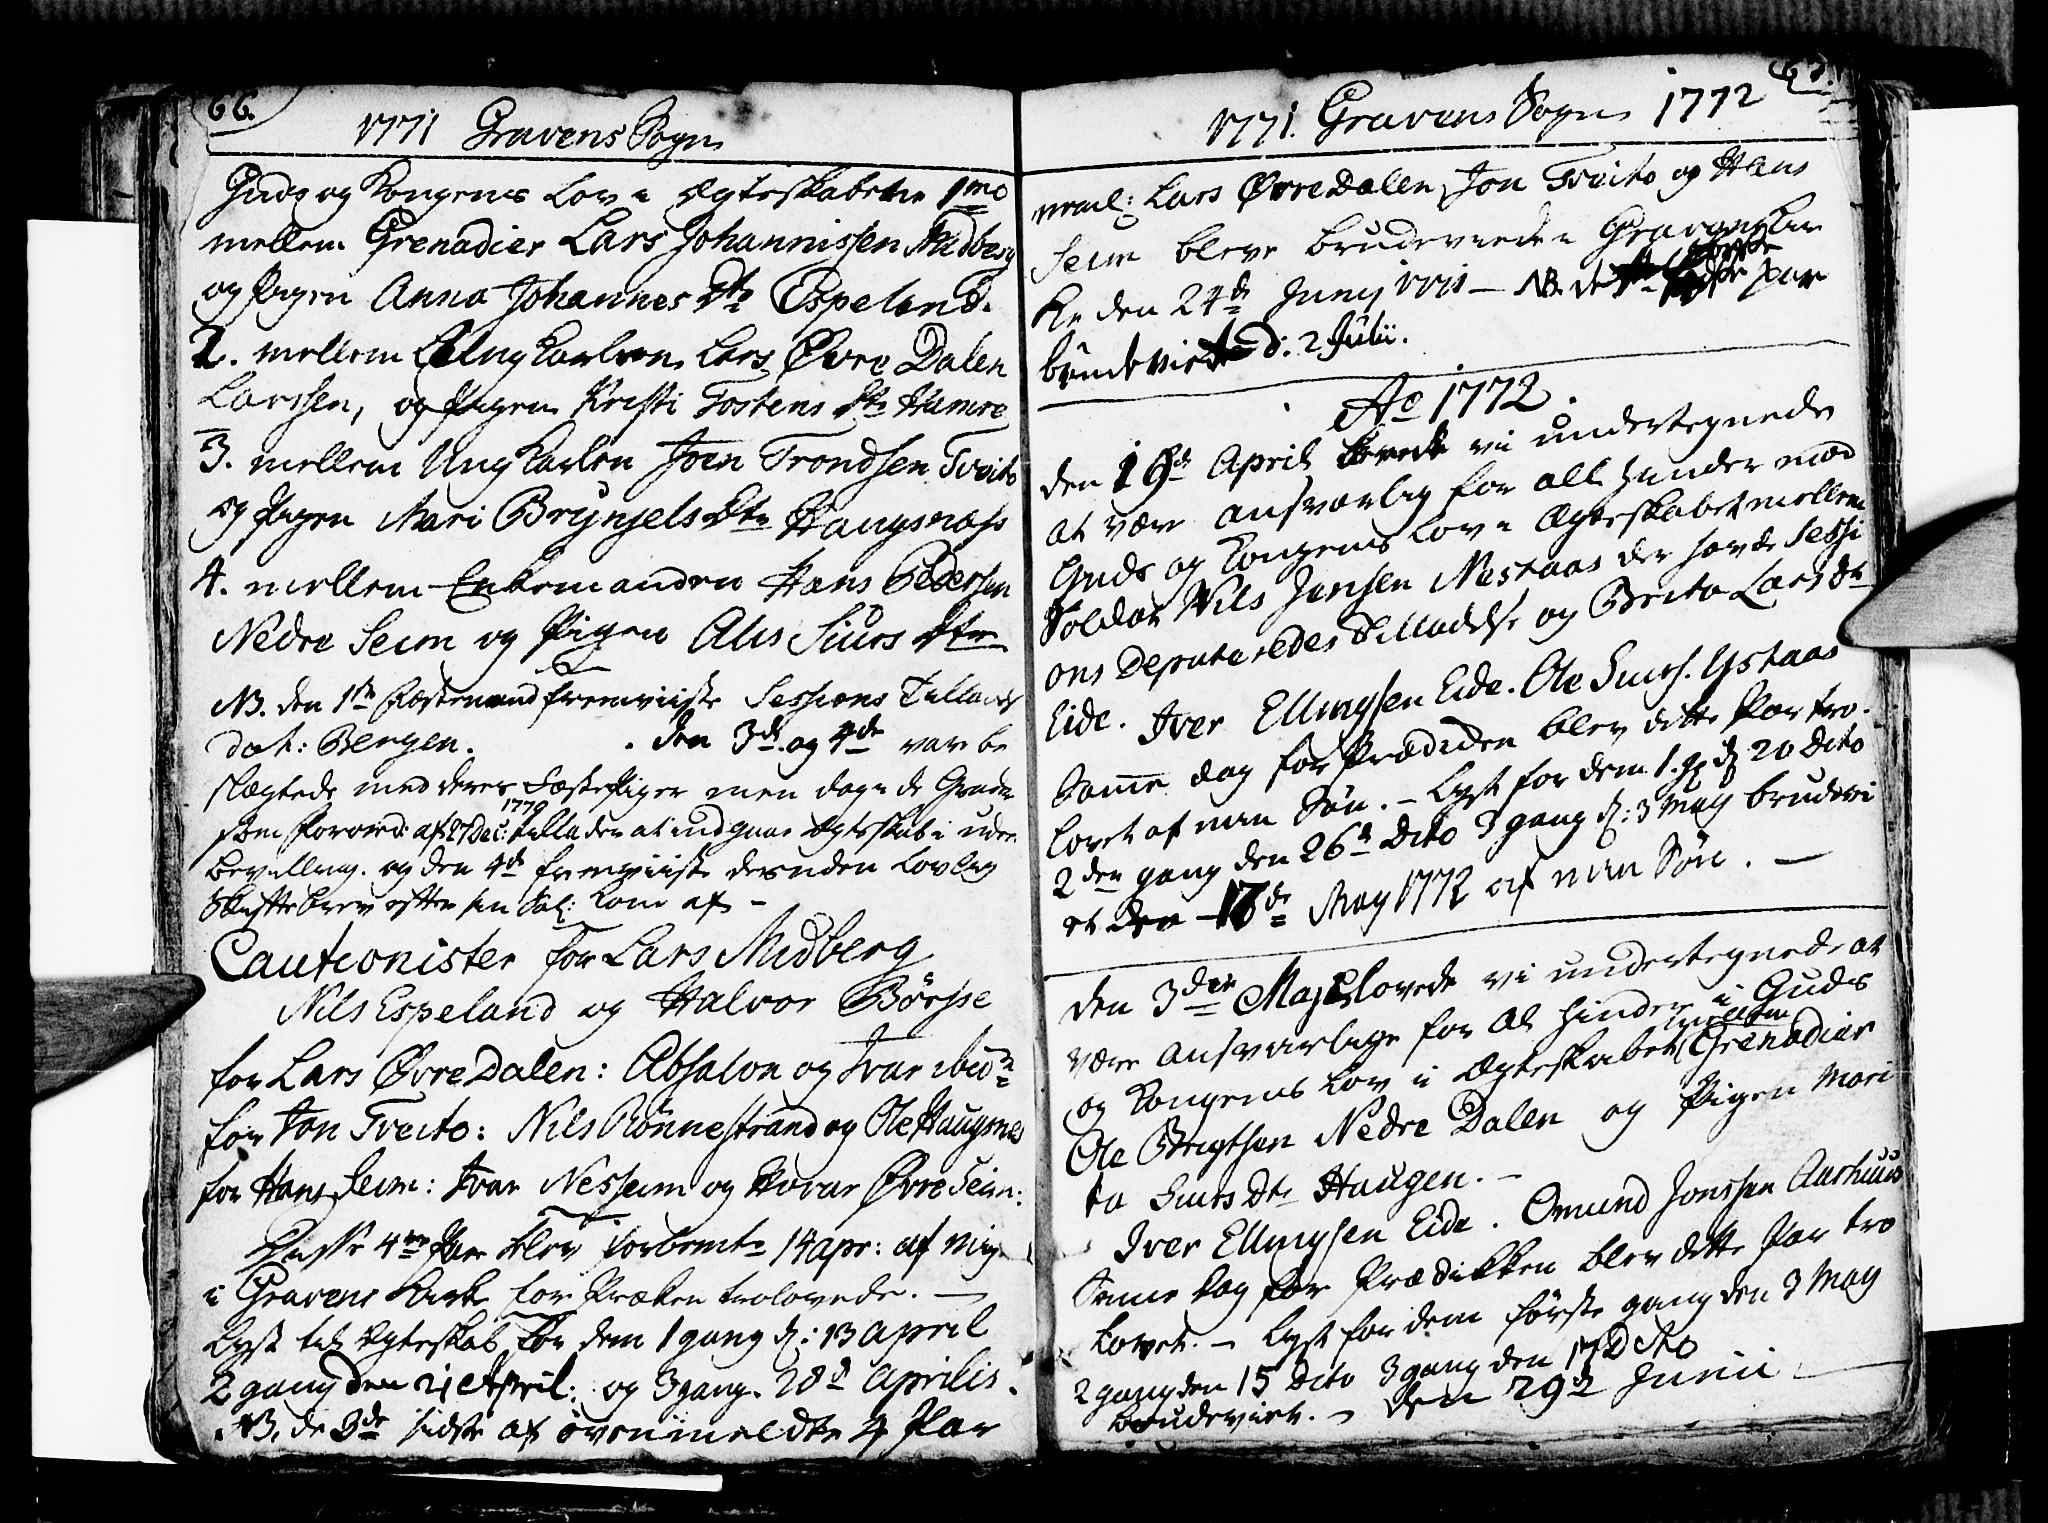 66.
1771 Gravens Sogn
Guds og Kongens Lov i Ægteskabet 1mo
mellem Grenadier Lars Johannissen Midberg
og Pigen Anna Johannes Dtr Espeland.
2. mellem Ung Karlen Lars Øvre Dalen
Larssen, og Pigen Kristi Tostens Dtr Hamre
3. mellem Ung Karlen Joen Trondsen Tveito
og Pigen Mari Brynjels Dtr Haugsnæss
4. mellem Enkemanden Hans Pedersen
Nedre Seim og Pigen Alis Siurs Dtr
NB. den 1ste Fæstemand fremviiste Sessions Tillads
dat: Bergen. den 3de og 4de var be
slægtede med deres FæstePiger men dog i de Grader
som Forord: af 27 Dec: 1770 tillader at indgaae Ægteskab i uden
bevilling. og den 4de fremviiste desuden Lovlig
Skiftebrev efter sin Sal: Kone af -
Cautionister for Lars Midberg
Nils Espeland og Halvor Börsse
for Lars Øvre Dalen: Absalon og Ivar ibid:
for Jon Tveito: Nils Rönnestrand og Ole Haugsnes
for Hans Seim: Ivar Nesheim og Havar Øvre Seim:
Disse 4re Par blev forbemte 14 apr: af mig
i Gravens Kirke for Præken trolovede. —
Lyst til Ægteskab for dem 1 gang d: 13 april
2 gang den 21 April: og 3 gang. 28d Aprilis.
NB. de 3de sidste af ovenmeldte 4 Par
67.
1771. Gravens Sogn 1772
neml: Lars Øvre Dalen, Jon Tveito og Hans
Seim bleve brudeviede i Gravens Kir
ke den 24de Junij 1771 — NB. det første par
brudeviet d: 2 Julii.
Ao 1772.
den 19de April lovede vi undertegnede
at være ansvarlig for all hinder mod
Guds og Kongens Lov i Ægteskabet mellem
Soldat Nils Jensen Nestaas der havde Sessi
ons Deputeredes Tilladelse og Brita Lars Dtr
Eide. Iver Ellingsen Eide. Ole Siurs. Ystaas
Samme dag for Prædiken blev dette Par tro-
lovet af min Sön. - Lyst for dem 1. g. d 20 Dito
2den gang den 26de Dito 3 gang d: 3 May brudevi
et den 17de May 1772 af min Sön. —
den 3die Maj lovede vi undertegnede at
være ansvarlige for al hinder i Guds
og Kongens Lov i Ægteskabet mellem Grenadier
Ole Brigtsen Nedre Dalen og Pigen Mari
ta Siurs Dtr Haugen. -
Iver Ellingsen Eide. Omund Jonssen Aarhuus
Samme dag for Prædikken blev dette Par tro
lovet. - Lyst for dem første gang den 3 May
2 gang den 15 Dito 3 gang den 17 Dito
brudeviet. - den 29de Junii -